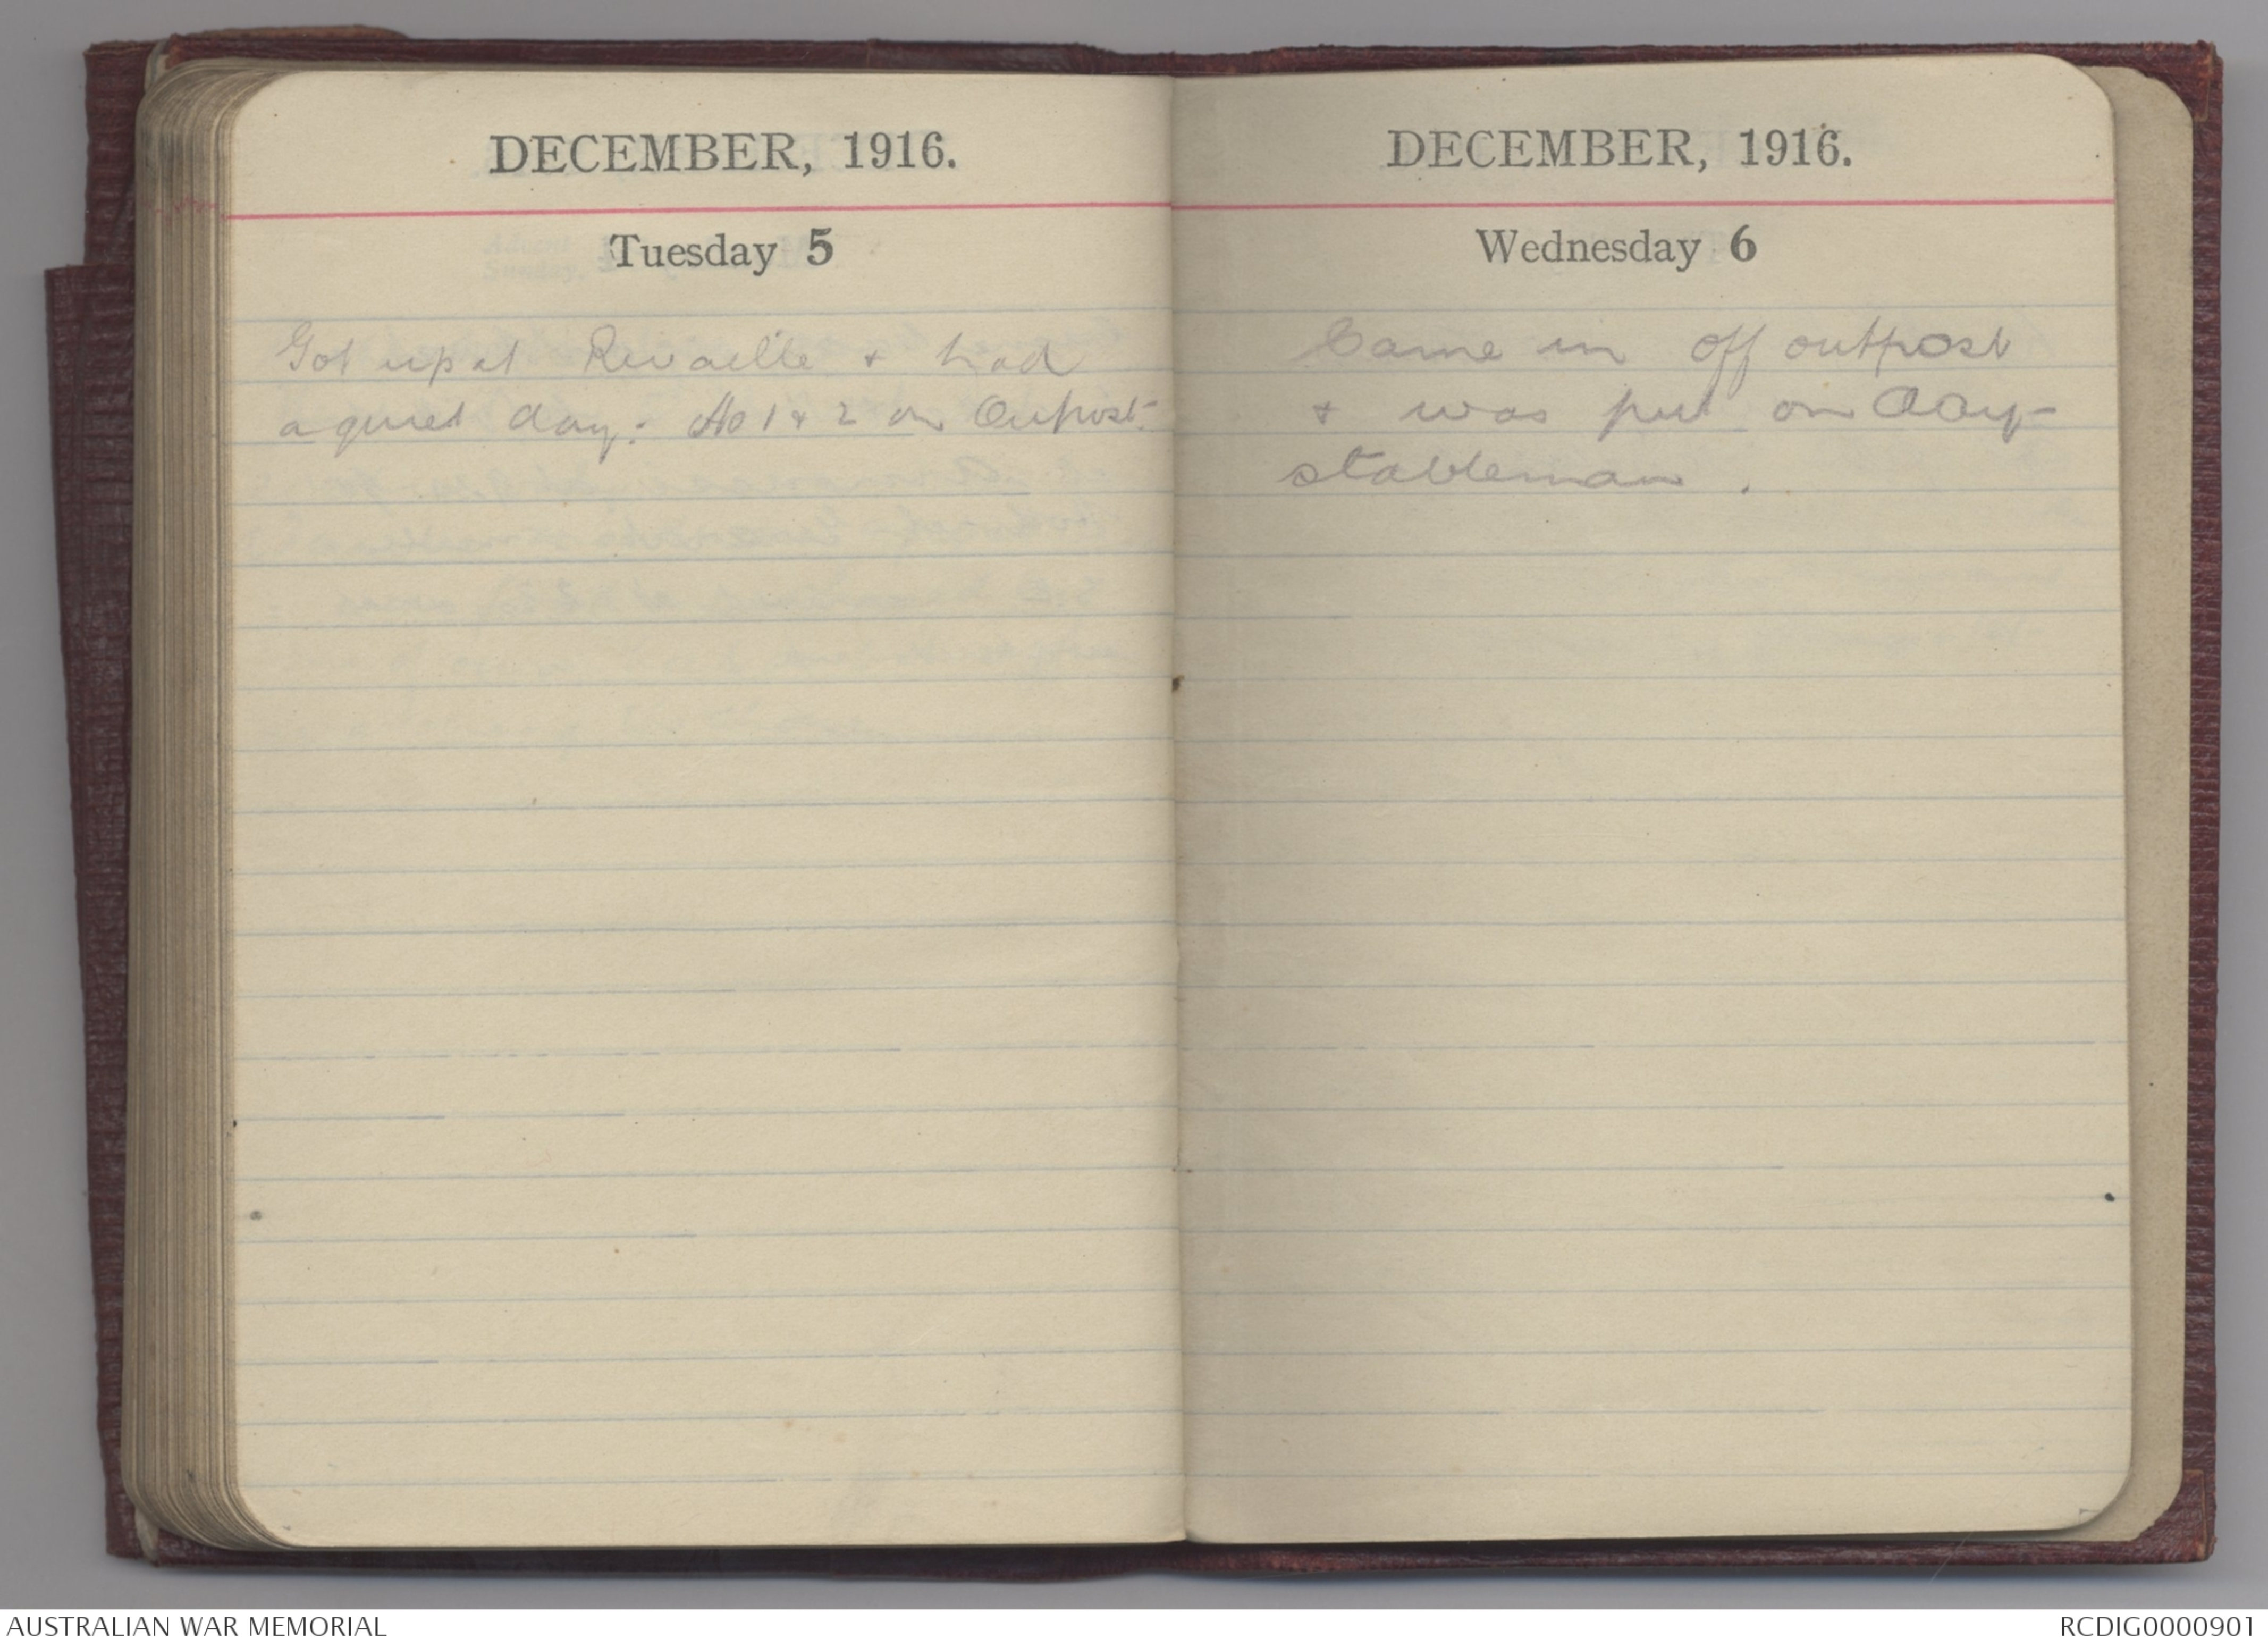 DECEMBER, 1916.
Tuesday 5
Got up at Revaelle & had
a quiet day. No 1 & 2 on Outpost.
DECEMBER, 1916.
Wednesday 6
Came in off outpost
& was put on Day-
stableman.
AUSTRALIAN WAR MEMORIAL
RCDIG0000901